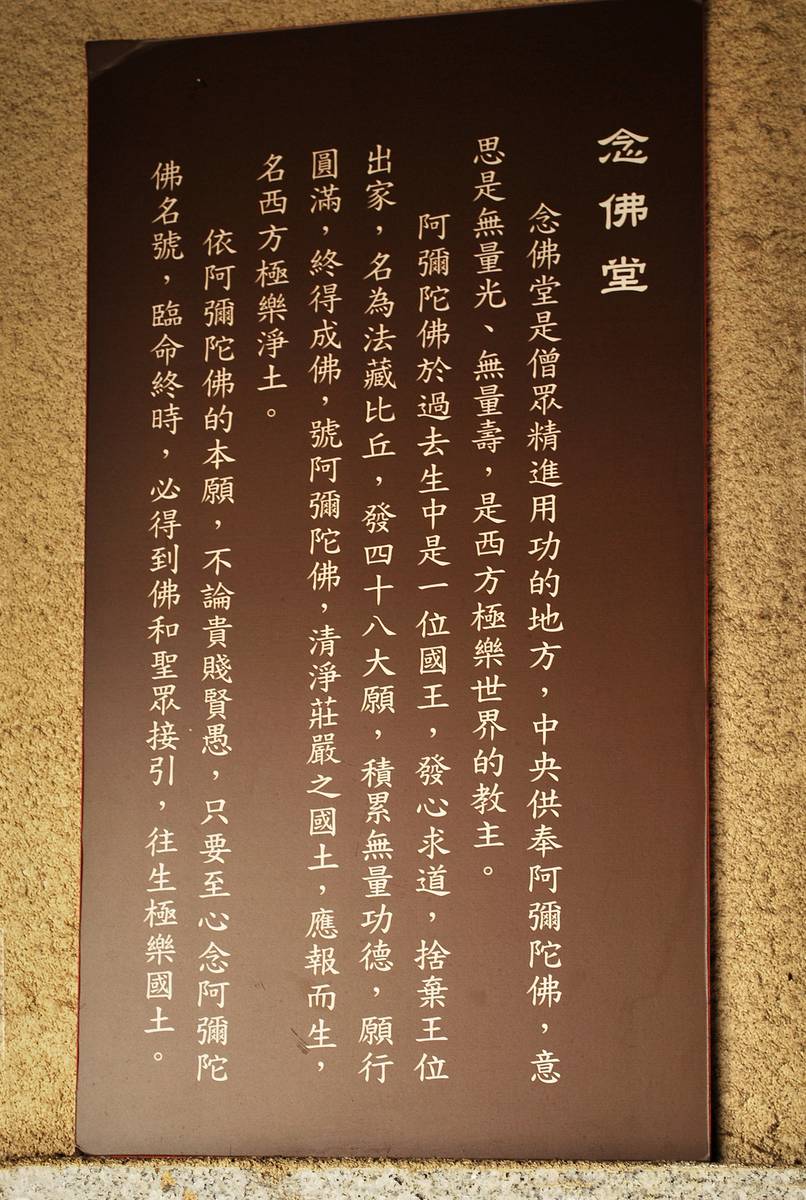 念佛堂
念佛堂是僧眾精進用功的地方，中央供奉阿彌陀佛，意
思是無量光、無量壽，是西方極樂世界的教主。
阿彌陀佛於過去生中是一位國王，發心求道，捨棄王位
出家，名為法藏比丘，發四十八大願，積累無量功德，願行
圓滿，終得成佛，號阿彌陀佛，清淨莊嚴之國土，應報而生，
名西方極樂淨土。
依阿彌陀佛的本願，不論貴賤賢愚，只要至心念阿彌陀
佛名號，臨命終時，必得到佛和聖眾接引，往生極樂國土。